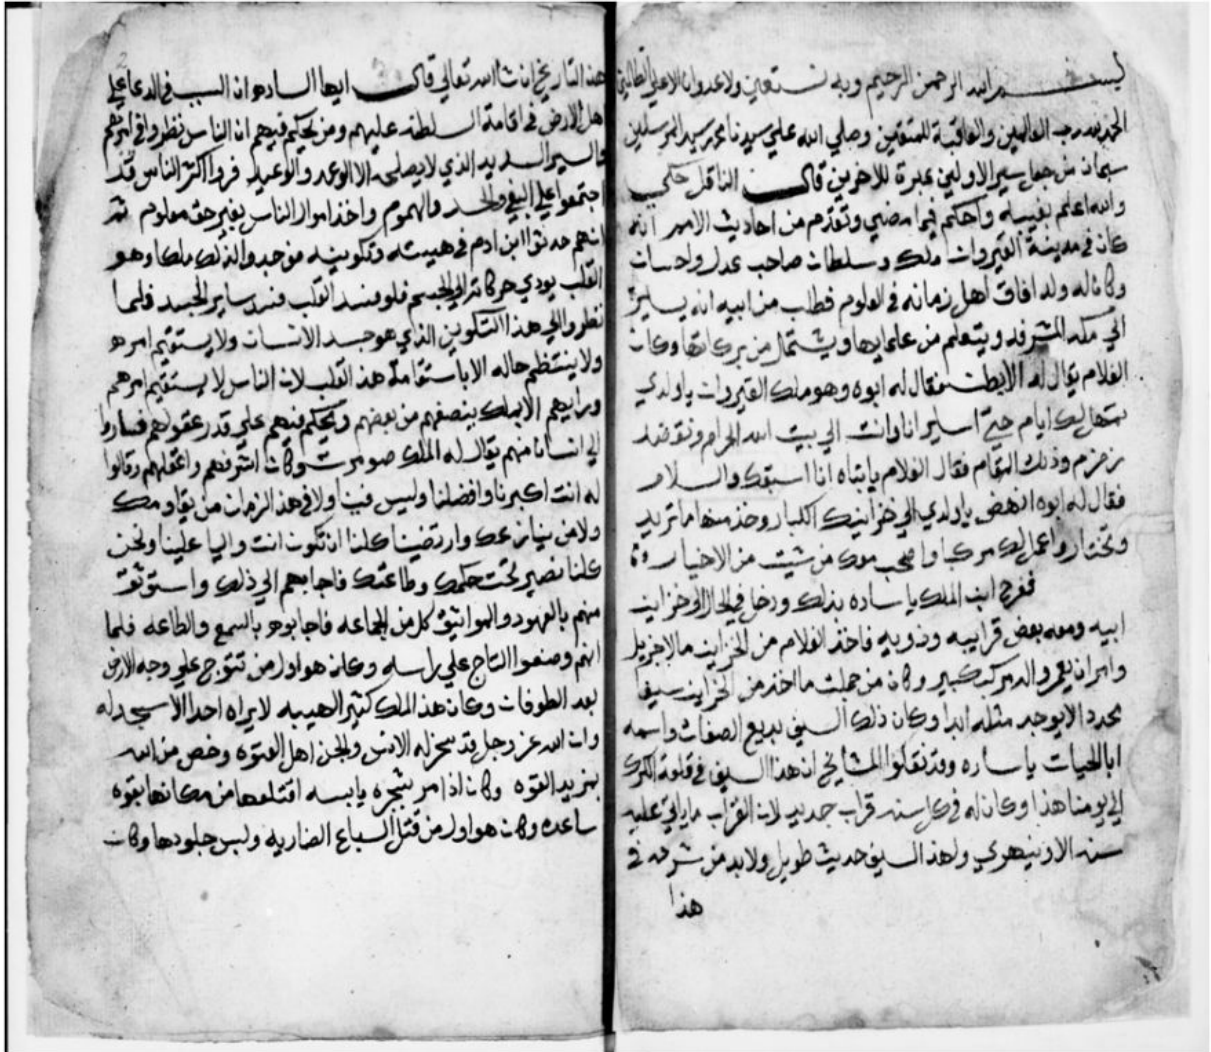 بسم الله الرحمن الرحيم وبه نستعين ولا عدوان الا علي الظالمين
الحمد لله رب العالمين والعاقبة للمتقين وصلي الله علي سيدنا محمد سيد المرسلين
سبحان من جعل سير الاولين عبرة للاخرين قال الناقل حكي
والله اعلم بغيبه واحكم فيما مضي وتقدم من احاديث الامم انه
كان في مدينة القيروان ملك وسلطان صاحب عدل واحسان
وكان له ولد افاق اهل زمانه في العلوم فطلب من ابيه انه يسير
الي مكه المشرفه ويتعلم من علمايها ويشتمل من بركاتها وكان
الغلام يقال له فقال له ابوه وهو ملك القيروان ياولدي
تمهل لك ايام حتي اسير انا وانت الي بيت الله الحرام ونقصد
زمزم وذلك المقام فقال الغلام يا ابتاه انا اسبقك والسلام
فقال له ابوه انهض ياولدي الي خزاينك الكبار وخذ منها ما تريد
وتختار واعمل لك مركبا واصحب معك من شيت من الاخيار
ففرح ابن الملك ياساده بذلك ودخل في الحال الي خزاين
ابيه ومعه بعض قرايبه وذويه فاخذ الغلام من الخزاين مالا جزيل
وامر ان يعمروا له مركب كبير وكان من جملت ما اخذ من الخزاين سيفا
مجدد لا يوجد مثله ابدا وكان ذلك السيف بديع الصفات واسمه
ابا الحيات ياساده وقد نقلوا المشايخ ان هذا السيف في قلعة الكرك
الي يومنا هذا وكان له في كل سنه قراب جديد لان القراب ما ياتي عليه
سنه الا وينهري ولهذا السيف حديث طويل ولابد من شرحه في
هذا
هذا التاريخ ان شا الله تعالي قال ايها الساده ان السبب في الدعا علي
اهل الارض في اقامة السلطنه عليهم ومن يحكم فيهم ان الناس نظروا في امرهم
والسير السديد الذي لا يصلحه الا الوعد والوعيد فروا اكثر الناس قد
اجتمعوا علي البغي والحسد والهموم واخذ اموال الناس بغير حق معلوم ثم
انهم حدثوا ابن ادم في هيبته وتكوينه فوجدوا لذلك ملكا وهو
القلب يودي حركاته الي الجسم فلو فسد القلب فسد ساير الجسد فلما
نظروا الي هذا التكوين الذي هو جسد الانسان ولا يستقيم امره
ولا ينتظم حاله الا باستقامة هذا القلب لان الناس لا يستقيم امرهم
ورايهم الا بملك ينصفهم من بعضهم ويحكم فيهم علي قدر عقولهم فساروا
الي انسانا منهم يقال له الملك وكان اشرفهم واعقلهم وقالوا
له انت اكبرنا وافضلنا وليس فينا ولا في هذا الزمان من يقاومك
ولا من ينازعك وارتضينا كلنا ان تكون انت واليا علينا ونحن
كلنا نصير تحت حكمك وطاعتك فاجابهم الي ذلك واستوثق
منهم بالعهود والمواثيق كل من الجماعه فاجابوه بالسمع والطاعه فلما
انهم وضعوا التاج علي راسه وكان هو اول من تتوج علي وجه الارض
بعد الطوفان وكان هذا الملك كثير الهيبه لا يراه احدا الا سجد له
وان الله عز وجل قد سخر له الانس والجن اهل القوه وخص من الله
بمزيد القوه وكان اذا مر بشجره يابسه اقتلعها من مكانها بقوة
ساعده وكان هو اول من قتل السباع الضاريه ولبس جلودها وكان